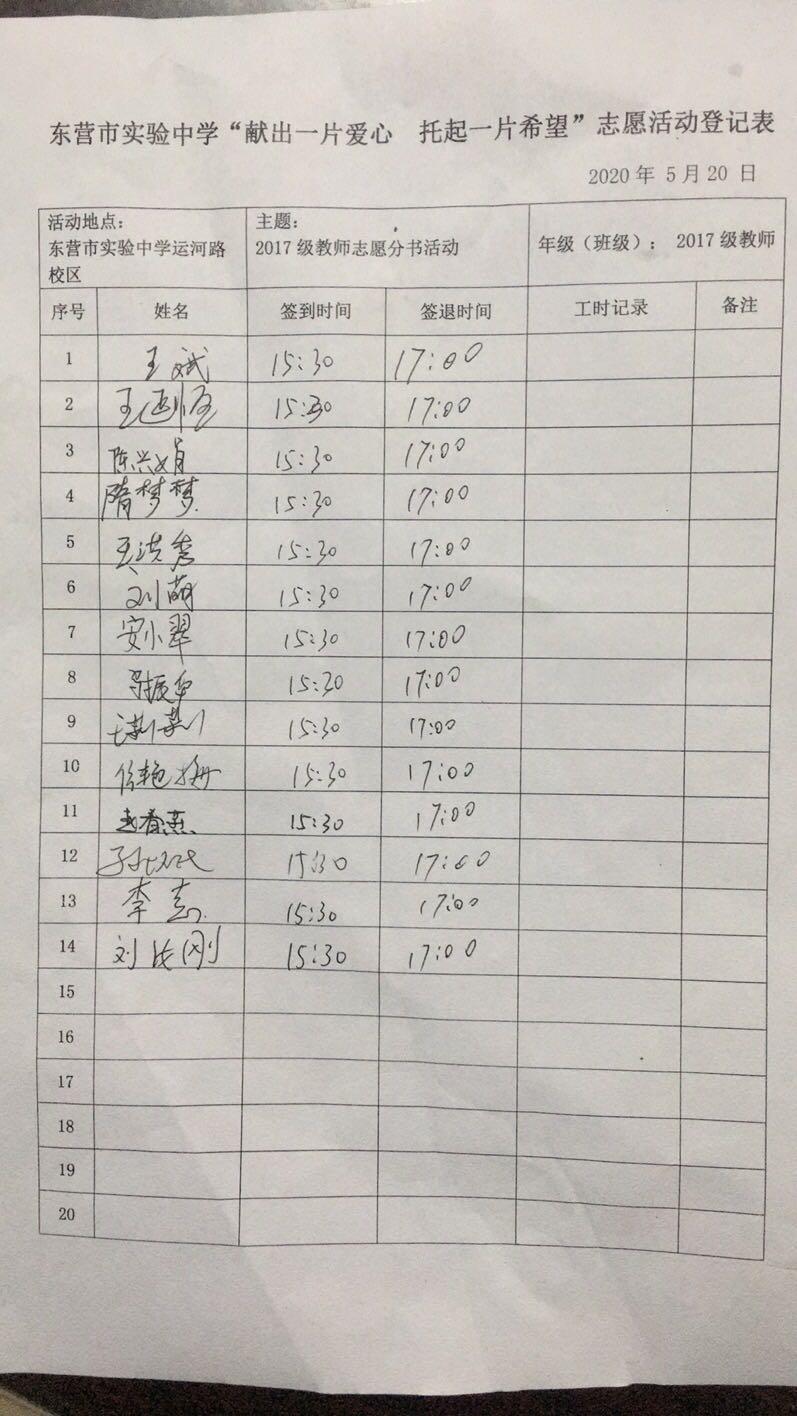 东营市实验中学“献出一片爱心 托起一片希望”志愿活动登记表
2020 年 5 月 20 日
活动地点：
东营市实验中学运河路
校区
主题：
2017 级教师志愿分书活动
年级（班级）： 2017 级教师
序号 姓名 签到时间 签退时间 工时记录 备注
1 王斌 15:30 17:00
2 15:30 17:00
3 陈兴娟 15:30 17:00
4 隋梦梦 15:30 17:00
5 王洪秀 15:30 17:00
6 刘萌 15:30 17:00
7 安小翠 15:30 17:00
8 15:30 17:00
9 15:30 17:00
10 15:30 17:00
11 赵春燕 15:30 17:00
12 15:30 17:00
13 李志 15:30 17:00
14 刘长刚 15:30 17:00
15
16
17
18
19
20